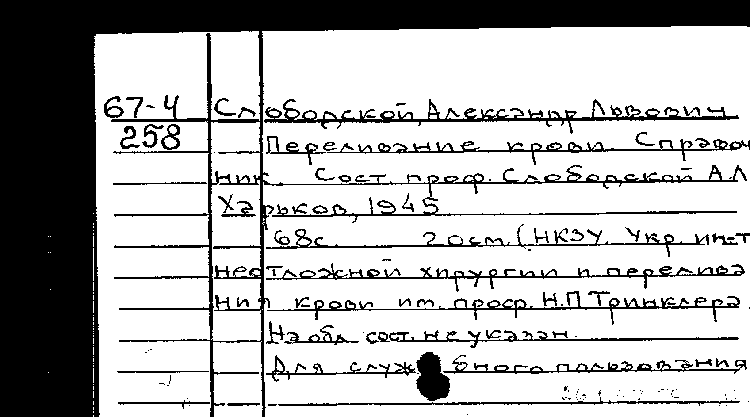 67-4 Слободской, Александр Львович
258 Переливание крови. Справоч
ник. Сост. проф. Слободской А.Л
Харьков, 1945
68с. 20см. (НКЗУ. Укр. ин-т
неотложной хирургии и перелива
ния крови им. проф. Н.П Тринклера.
На обл. сост. не указан.
Для служебного пользования